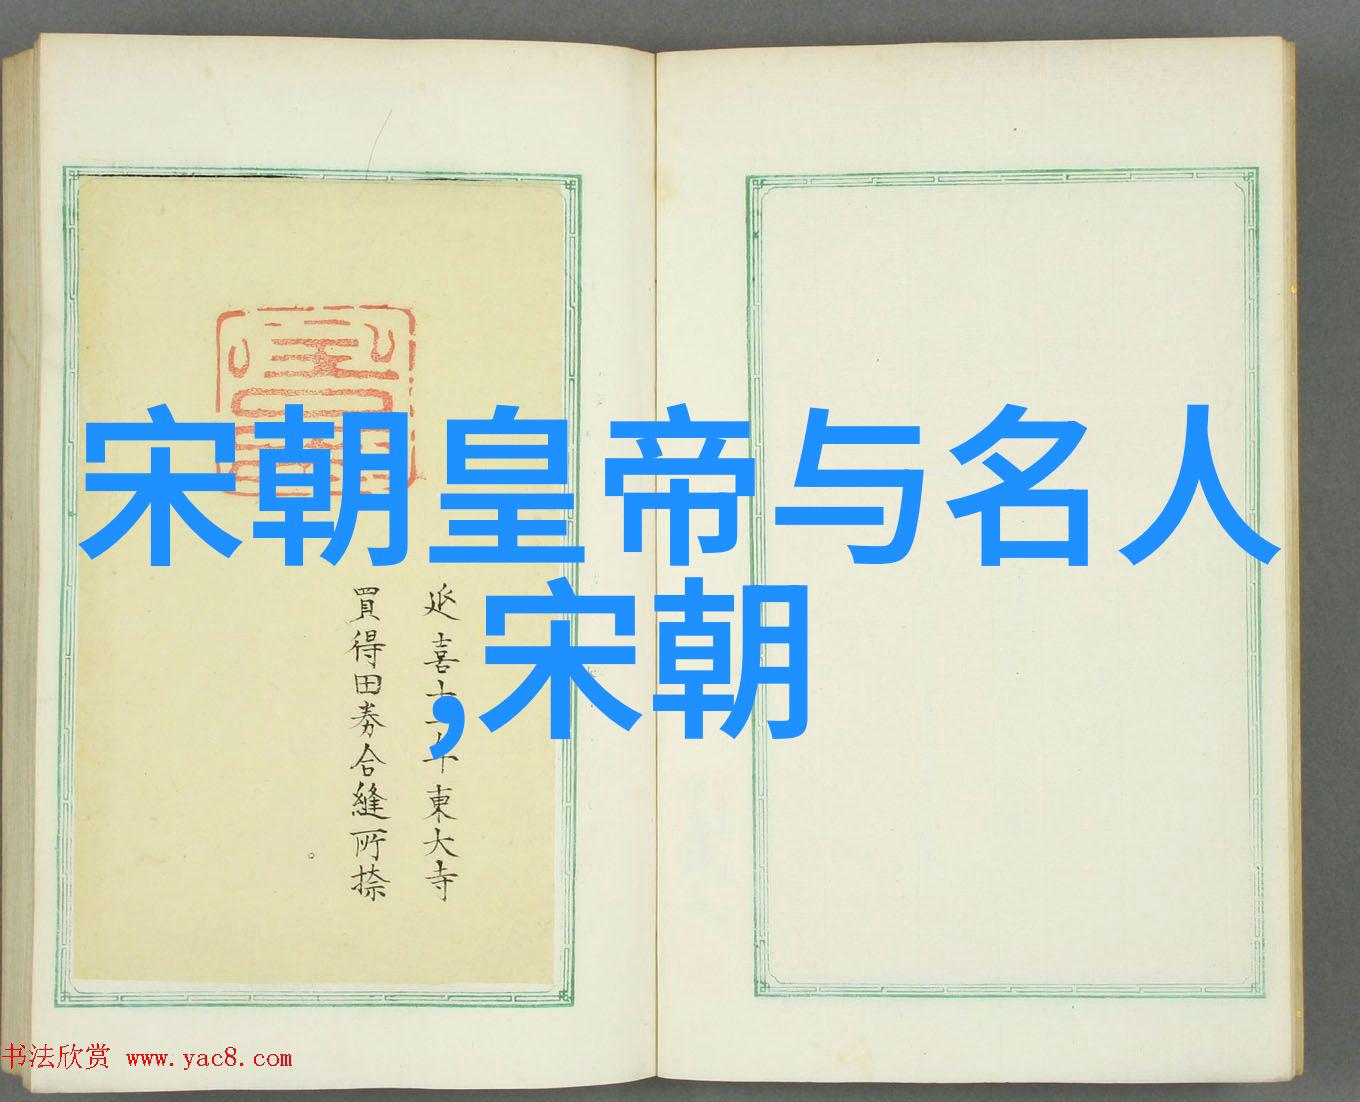 宋朝皇帝与名人
,宋朝
延喜十一年東大寺
買得田券合縫所捺
。
书法欣赏 www.yac8.com